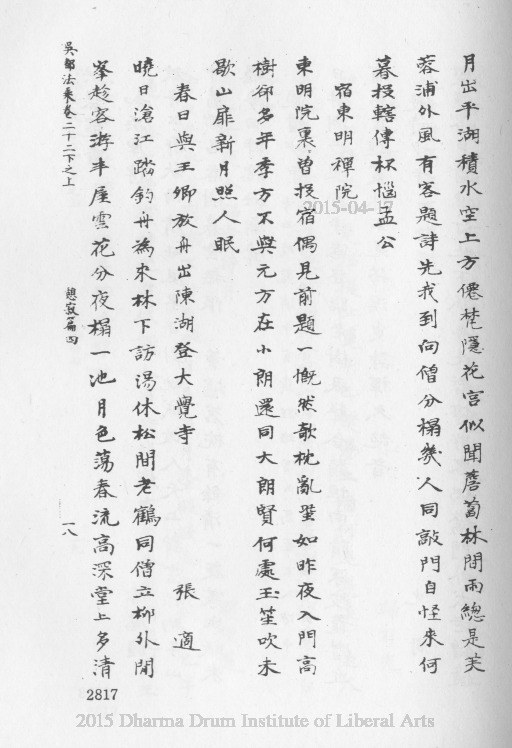 月出平湖積水空上方僊梵隱花宮似聞薝蔔林間雨總是芙
蓉浦外風有客題詩先我到向僧分榻幾人同敲門自怪來何
暮投轄傳杯惱孟公
宿東明禪院
東明院裏曾投宿偶見前題一慨然欹枕亂蛩如昨夜入門高
樹卻多年季方不與元方在小朗還同大朗賢何處玉笙吹未
歇山扉新月照人眠
春日與王卿放舟出陳湖登大覺寺
張適
曉日滄江踏釣舟為來林下訪湯休松間老鶴同僧立柳外閒
峯趁客游半屋雲花分夜榻一池月色蕩春流高深堂上多清
吳都法乘卷二十二下之上
憩寂篇四
一八
2817
2015-04-17
2015 Dharma Drum Institute of Liberal Arts